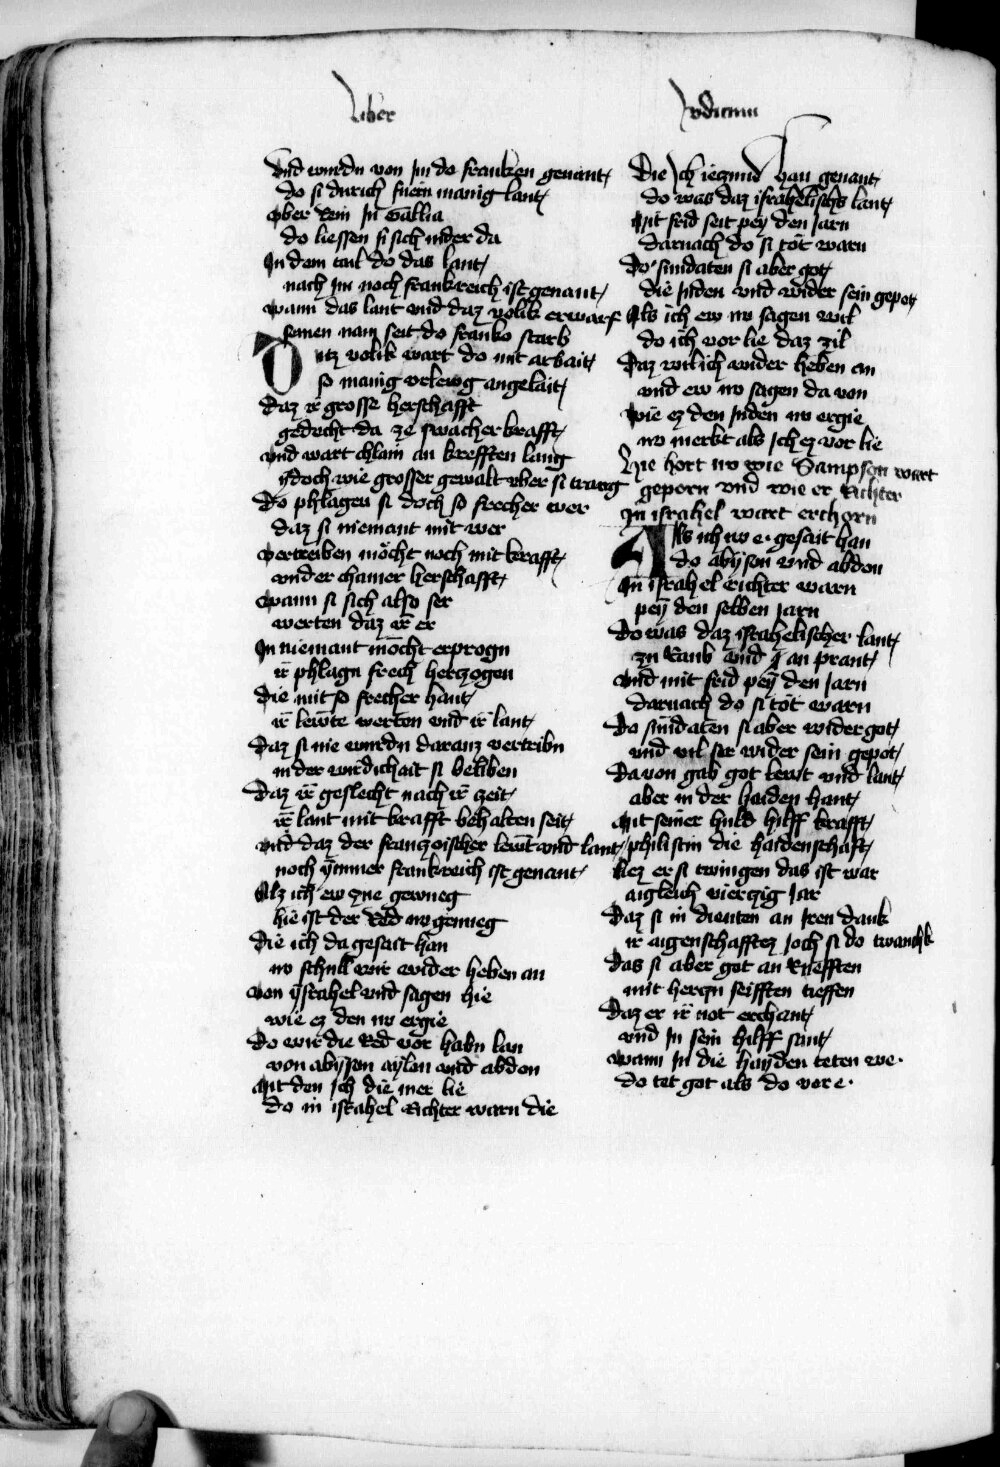 Liber
Judicum
Vnd wurdn von Jm do franken genant
do si durich fuern manig lant
Vber Rein Jn Gallia
do liessen si sich nider da
Jn dem tail do das lant
nach Jm noch frankreich ist genant
wann das lant vnd daz volik erwarf
seinen nam seit do franko starb
Ditz volik wart do mit arbait
so manig vrlewg angelait
Daz ir grosse herschafft
gedecht da ze swacher krafft
vnd wart chlain an krefften lang
ydoch wie grosser gewalt vber si twang
Do phlagen si doch so frecher wer
daz si niemant mit wer
vertreiben möcht noch mit krafft
vnder chainer herschafft
wann si sich also ser
werten daz ir er
Jn niemant möcht erprogn
ir phlagn frech herczogen
die mit so frecher hant
ir lewte werten vnd ir lant
Daz si nie wurdn daraus vertribn
in der wirdichait si beliben
Daz ir geslecht nach ir zeit
ir lant mit krafft behalten seit
vnd daz der franczoischer lewt vnd lant
noch ymmer frankreich ist genant
Alz ich ew zue gewueg
hie ist der Red nv genueg
Die ich da gesait han
nv schull wir wider heben an
von ysrahel vnd sagen hie
wie ez den nv ergie
Do wir die Red vor habn lan
von abyson aylon vnd abdon
Mit den Jch die mer lie
do in israhel Richter warn die
Die Jch iezund han genant
do was daz israhelischs lant
Mit frid seit pey den Jarn
darnach do si tot warn
Do sundaten si aber got
die Juden vnd wider sein gepot
Als ich ew nv sagen wil
do ich vor lie daz zil
Daz wil ich wider heben an
vnd ew nv sagen da von
wie ez den Juden nv ergie
nv merkt als Jch ez vor lie
Hie hort nv wie Sampson wart
geporn vnd wie er Richter
Jn israhel wart erchorn
Als ich nv e gesait han
do abyson vnd abdon
Jn israhel Richter warn
pey den selben Jarn
Do was daz israhelischer lant
an Raub vnd an prant
vnd mit frid pey den Jarn
darnach do si tot warn
Do sundaten si aber wider got
vnd vil ser wider sein gepot
Da von gab got lewt vnd lant
aber in der haiden hant
Mit seiner huld hilff krafft
philistin die haidenschaft
liez er si twingen das ist war
aigleich vierczig Jar
Daz si in dienten an Jren dank
ir aigenschafftez Joch si do twanchk
das si aber got an Ruefften
mit herczn seifften tieffen
Daz er ir not erchant
vnd Jn sein hilff sant
wann Jn die hayden teten we
do tet got als do vor e